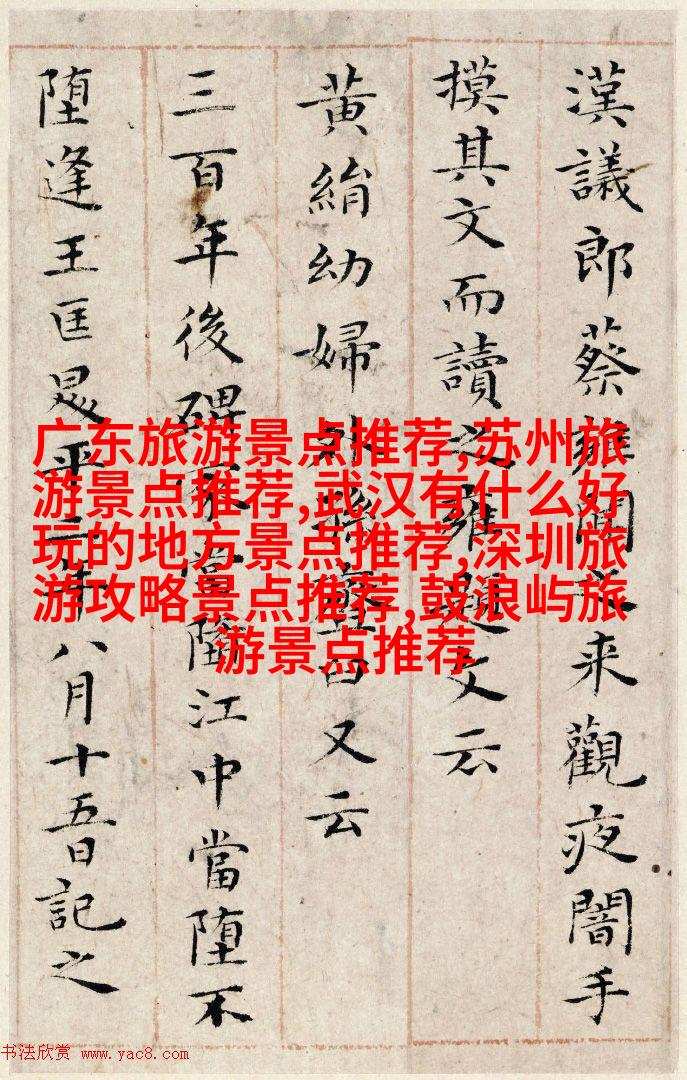 漢議郎蔡雍聞之来觀夜闇手
摸其文而讀之雍題文云
黄絹幼婦外孫臼又云
三百年後碑冢當堕江中當堕不
堕逢王匡平二年八月十五日記之
广东旅游景点推荐,苏州旅
游景点推荐,武汉有什么好
玩的地方景点推荐,深圳旅
游攻略景点推荐,鼓浪屿旅
游景点推荐
书法欣赏 www.yac8.com